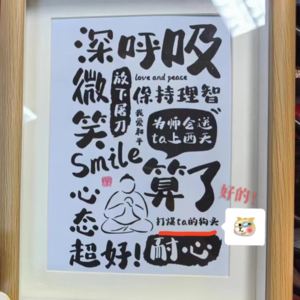 深呼吸
微笑
Smile
心态
超好!
放下屠刀
love and peace
我爱和平
保持理智
为师会送
ta上西天
算了
打爆ta的狗头
耐·心
好的!